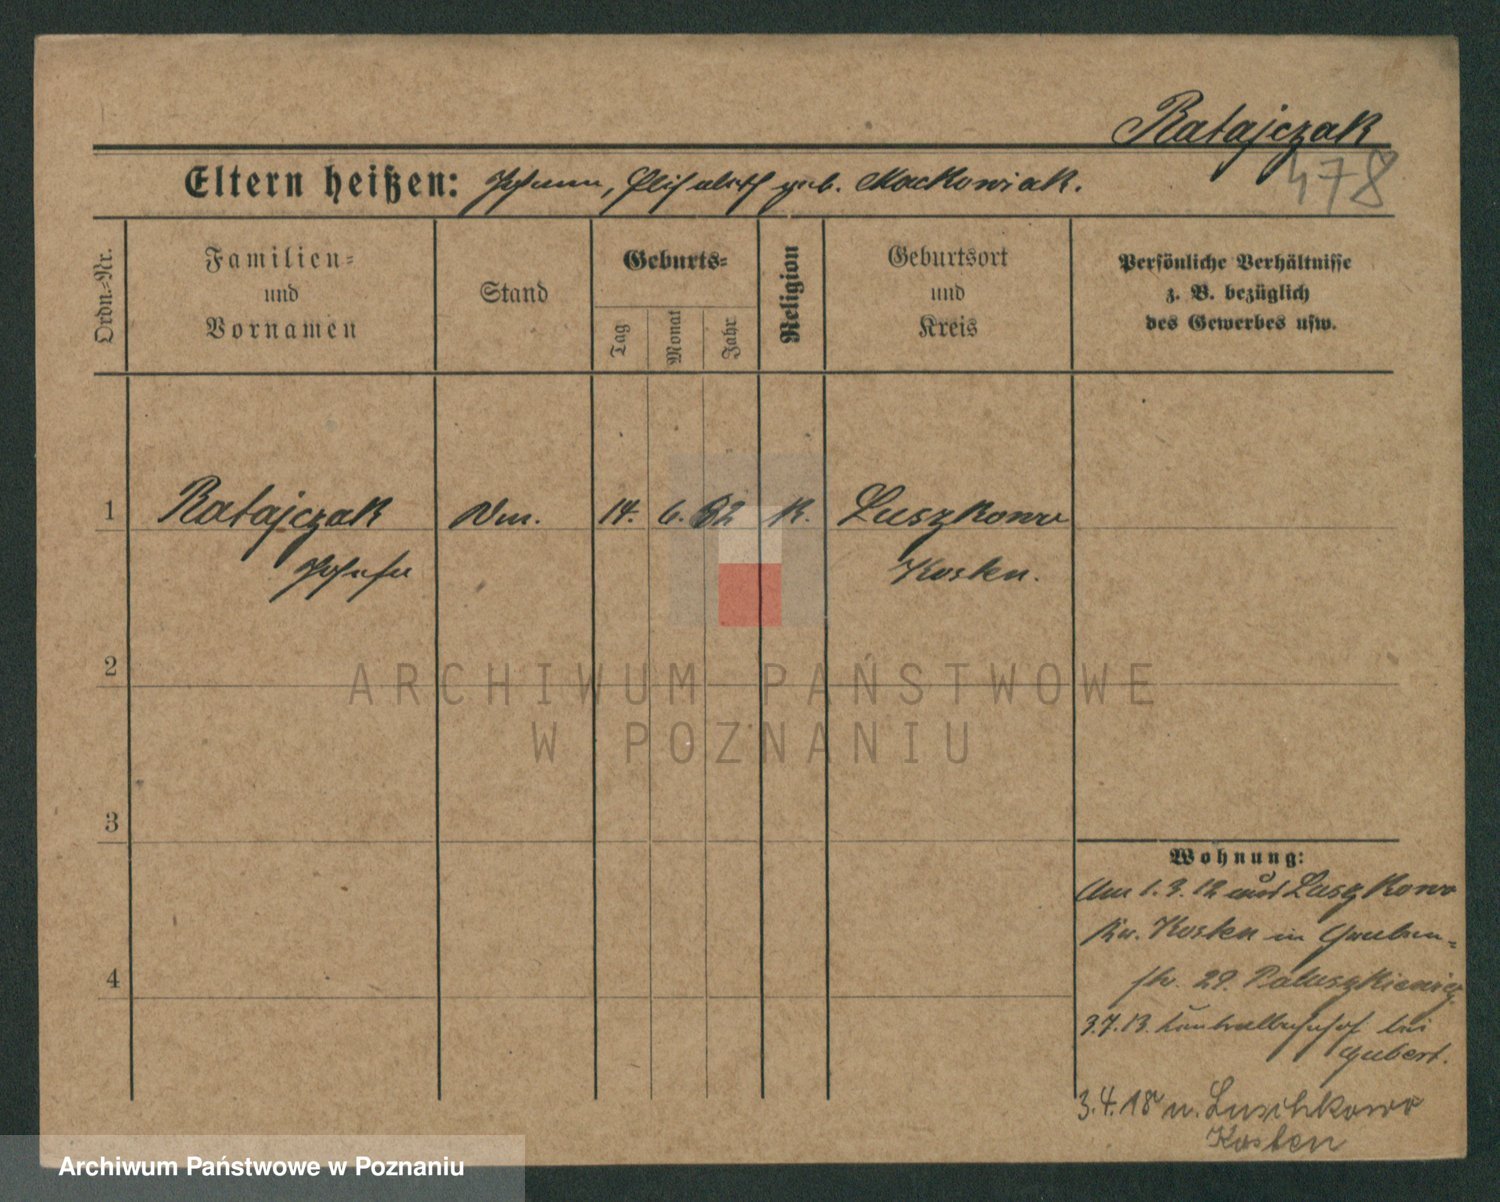 Ratajczak
478
Eltern heißen: Johann, Elisabeth geb. Mackowiak.
Ordn.-Nr.
Familien-
und
Vornamen
Stand
Geburts-
Tag
Monat
Jahr
Religion
Geburtsort
und
Kreis
Persönliche Verhältnisse
z. B. bezüglich
des Gewerbes usw.
1 Ratajczak 14. 6. 82 K. Luszkowo
Josefa Kosten.
2
ARCHIWUM PAŃSTWOWE
W POZNANIU
3
4
Wohnung:
Am 1.3.12 aus Luszkowo
Kr. Kosten in Graben-
str. 29. Paluszkiewicz
3.7.13. Zentralbahnhof bei
Gubert.
3.4.18 n. Luschkowo
Kosten
Archiwum Państwowe w Poznaniu